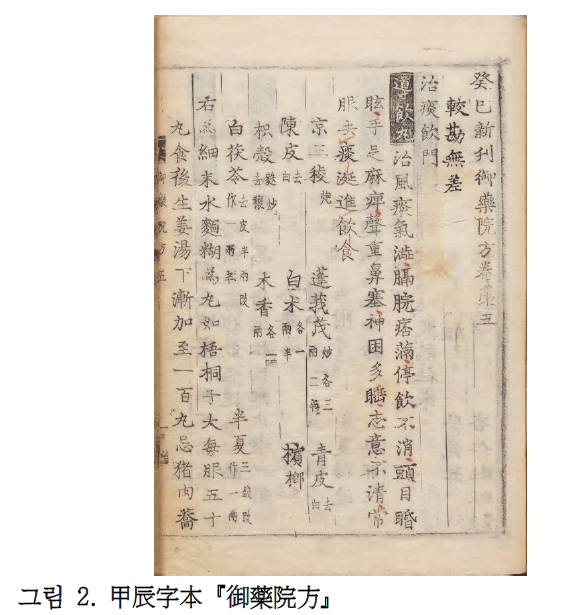 癸巳新刊御藥院方卷第五
較勘無差
治痰飲門
導飲丸 治風痰氣澁膈脘痞滿停飲不消頭目睧
眩手足麻痺聲重鼻塞神困多睡志意不清常
服去痰涎進飲食
京三稜 炮 蓬莪茂 炒各三兩二錢 青皮 去白
陳皮 去白 白朮 各一兩半 檳榔
枳殼 麩炒去穰 木香 各一兩 半夏 三錢改作一兩
白茯苓 去皮半兩改作一兩半
右為細末水麵糊為丸如梧桐子大每服五十
丸食後生姜湯下漸加至一百丸忌猪肉蕎
御藥院方五
그림 2. 甲辰字本『御藥院方』